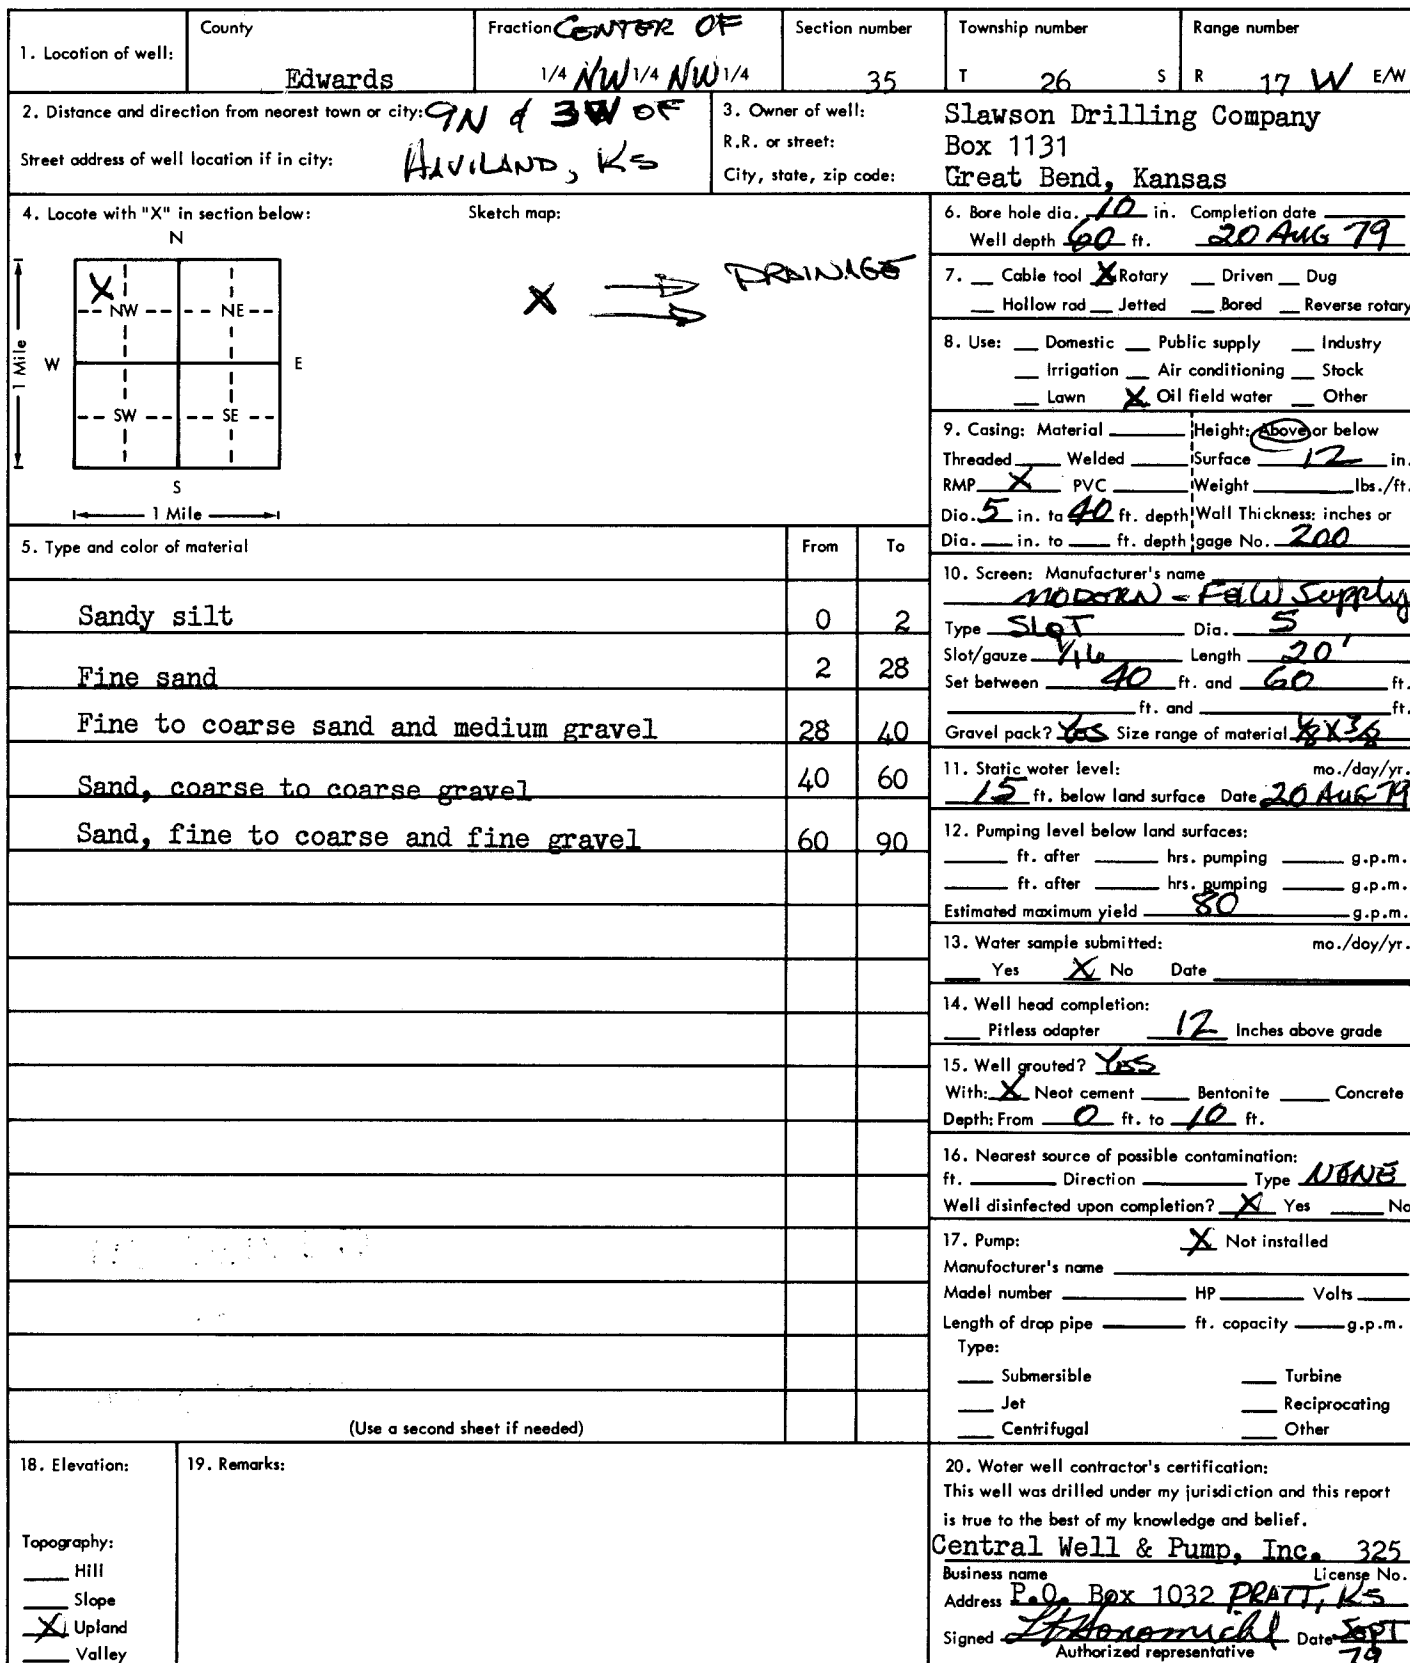 1. Locotion of well:
County
Edwards
Fraction CENTER OF
1/4 NW 1/4 NW 1/4
Section number
35
Township number
T 26 S
Range number
R 17 W E/W
2. Distance and direction from nearest town or city: 9N & 3W OF
Street address of well location if in city: HAVILAND, KS
3. Owner of well: Slawson Drilling Company
R.R. or street: Box 1131
City, state, zip code: Great Bend, Kansas
4. Locote with "X" in section below: Sketch map:
N
X
NW NE
W E
SW SE
S
1 Mile
1 Mile
X DRAINAGE
5. Type and color of material From To
Sandy silt 0 2
Fine sand 2 28
Fine to coarse sand and medium gravel 28 40
Sand, coarse to coarse gravel 40 60
Sand, fine to coarse and fine gravel 60 90
(Use a second sheet if needed)
6. Bore hole dia. 10 in. Completion date
Well depth 60 ft. 20 AUG 79
7. Cable tool X Rotary Driven Dug
Hollow rad Jetted Bored Reverse rotary
8. Use: Domestic Public supply Industry
Irrigation Air conditioning Stock
Lawn X Oil field water Other
9. Casing: Material Height: Above or below
Threaded Welded Surface 12 in.
RMP X PVC Weight lbs./ft.
Dio. 5 in. ta 40 ft. depth Wall Thickness: inches or
Dia. in. to ft. depth gage No. 200
10. Screen: Manufacturer's name
MODORN - F&W Supply
Type SLOT Dia. 5
Slot/gauze 1/16 Length 20'
Set between 40 ft. and 60 ft.
ft. and ft.
Gravel pack? Yes Size range of material 1/8 X 3/8
11. Static water level: mo./day/yr.
15 ft. below land surface Date 20 AUG 79
12. Pumping level below land surfaces:
ft. after hrs. pumping g.p.m.
ft. after hrs. pumping g.p.m.
Estimated maximum yield 80 g.p.m.
13. Water sample submitted: mo./doy/yr.
Yes X No Date
14. Well head completion:
Pitless odapter 12 Inches above grade
15. Well grouted? Yes
With: X Neot cement Bentonite Concrete
Depth: From 0 ft. to 10 ft.
16. Nearest source of possible contamination:
ft. Direction Type NONE
Well disinfected upon completion? X Yes No
17. Pump: X Not installed
Manufocturer's name
Madel number HP Volts
Length of drop pipe ft. capacity g.p.m.
Type:
Submersible Turbine
Jet Reciprocating
Centrifugal Other
18. Elevation:
Topography:
Hill
Slope
X Upland
Valley
19. Remarks:
20. Woter well contractor's certification:
This well was drilled under my jurisdiction and this report
is true to the best of my knowledge and belief.
Central Well & Pump, Inc. 325
Business name License No.
Address P.O. Box 1032 PRATT, KS
Signed Date Sept
Authorized representative 79